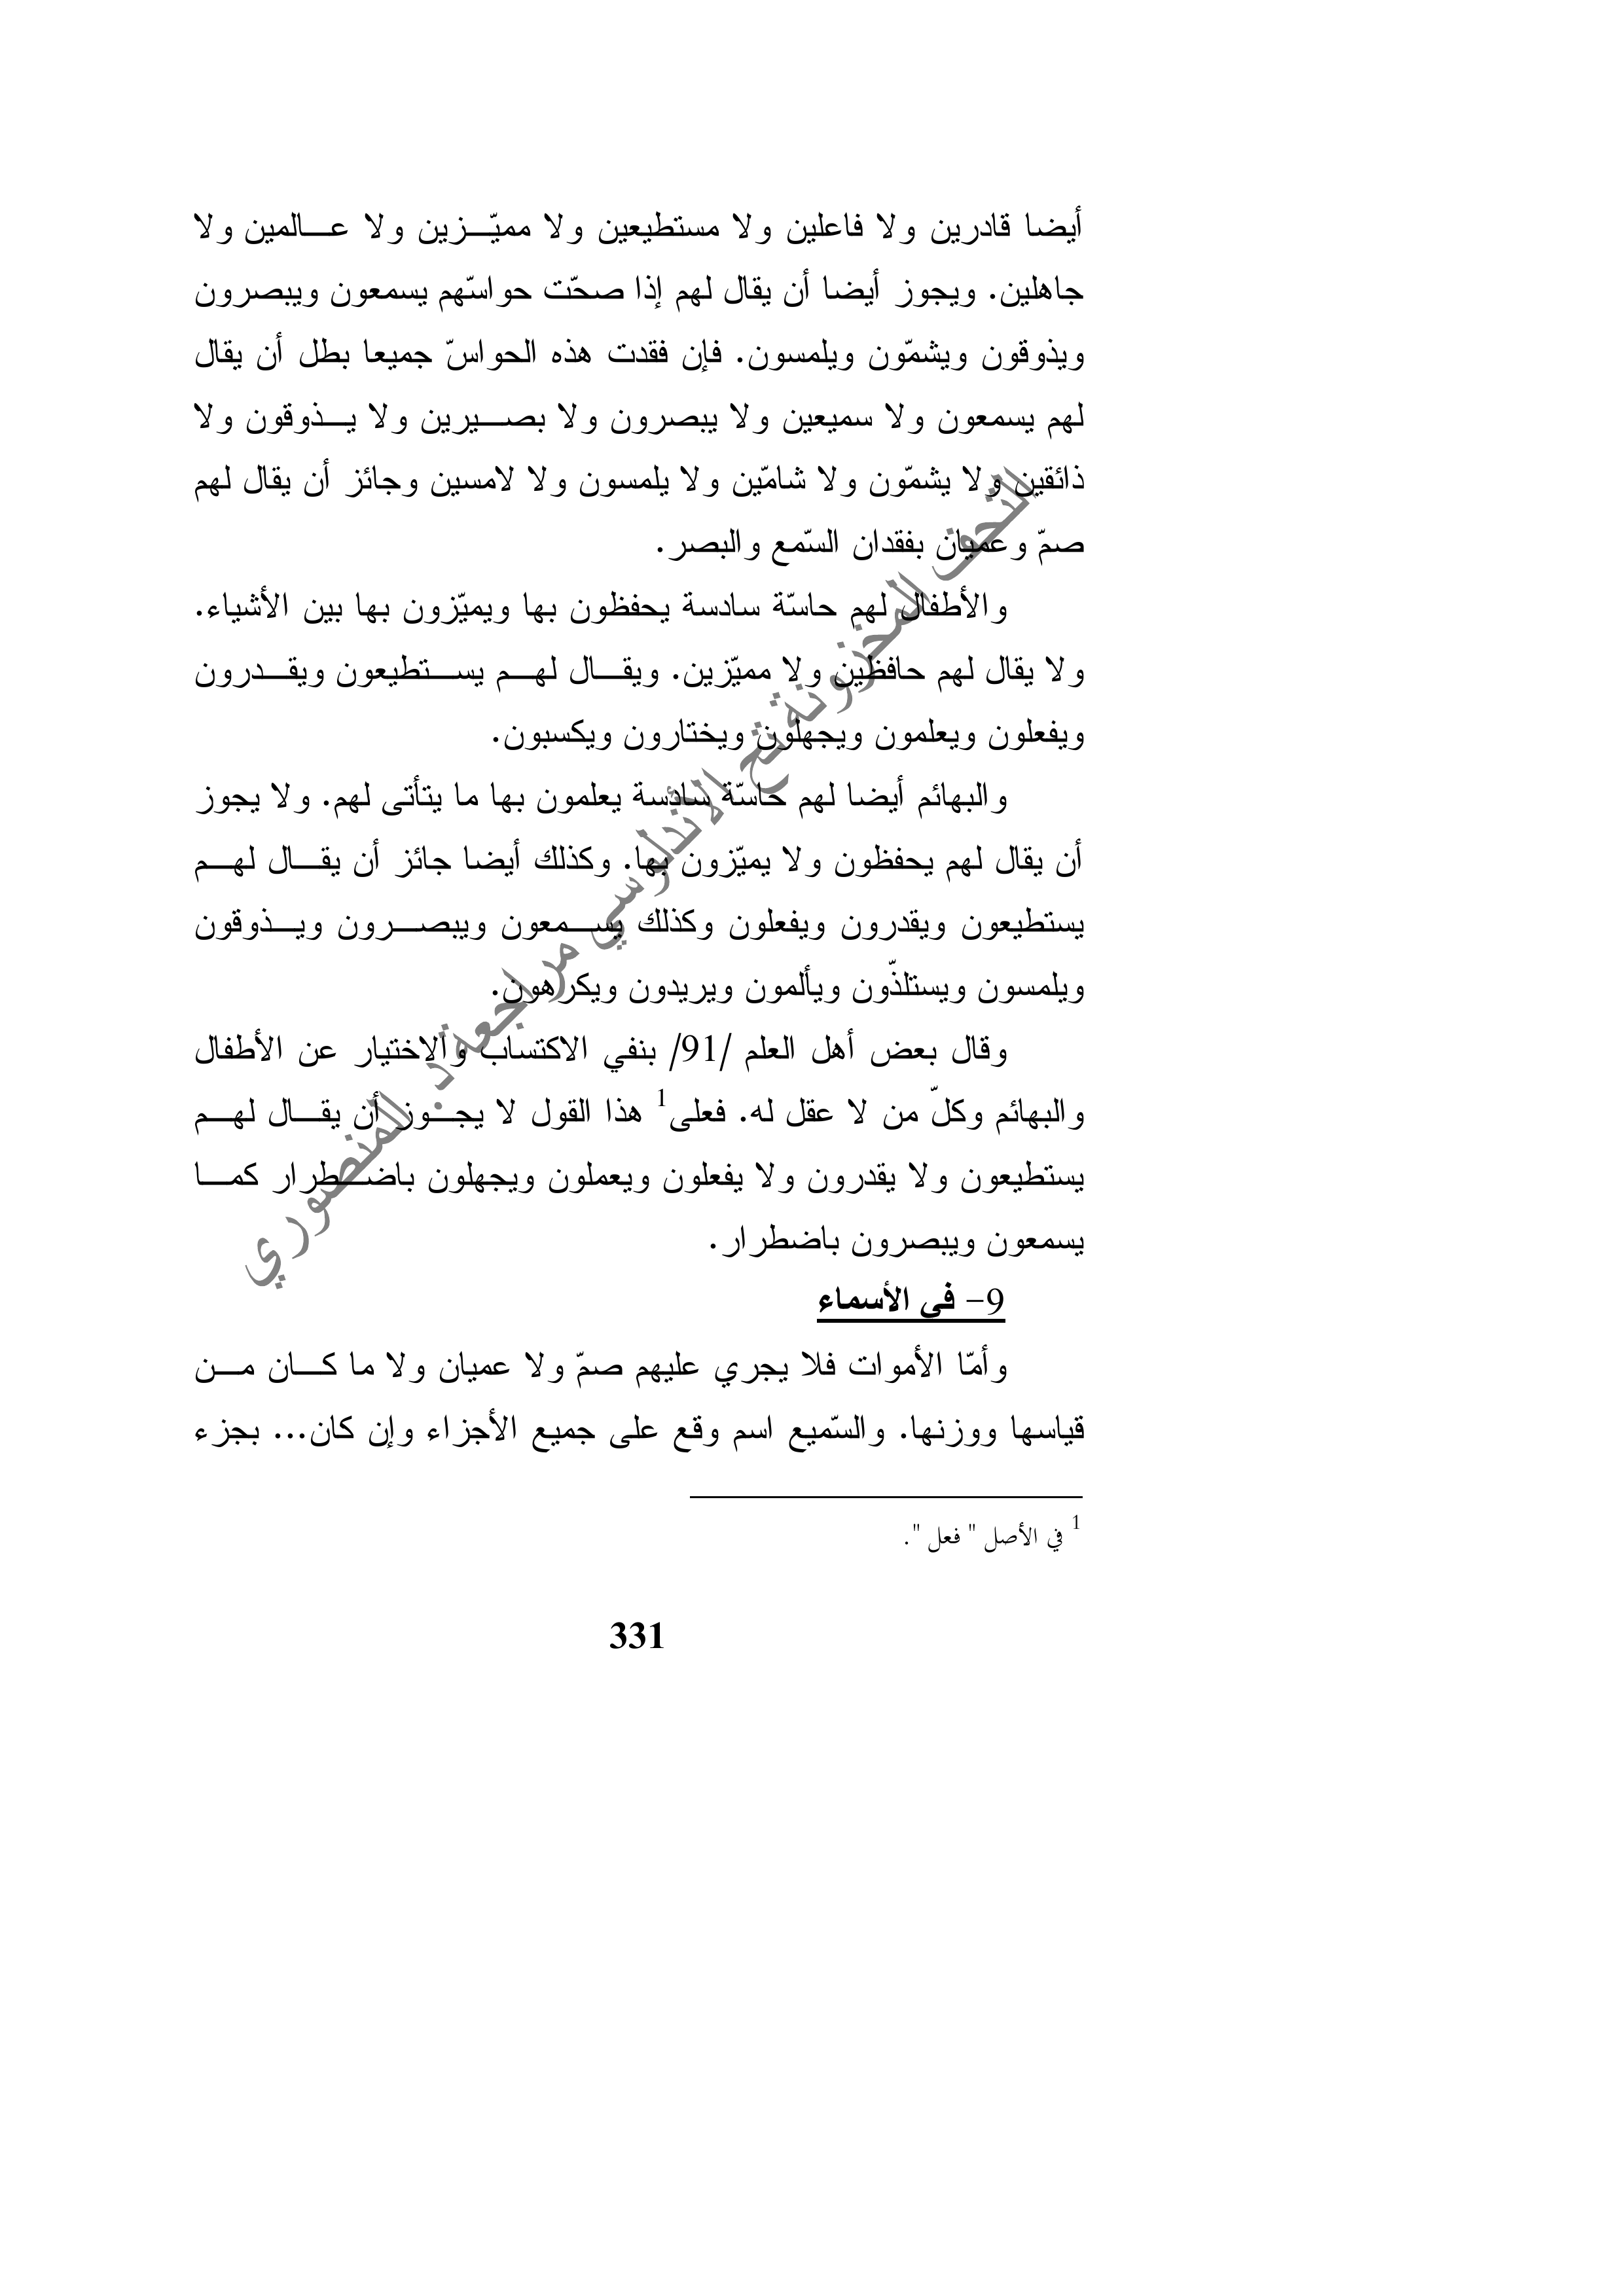 أيضا قادرين ولا فاعلين ولا مستطيعين ولا مميّزين ولا عالمين ولا
جاهلين. ويجوز أيضا أن يقال لهم إذا صحّت حواسّهم يسمعون ويبصرون
ويذوقون ويشمّون ويلمسون. فإن فقدت هذه الحواسّ جميعا بطل أن يقال
لهم يسمعون ولا سميعين ولا يبصرون ولا بصيرين ولا يذوقون ولا
ذائقين ولا يشمّون ولا شامّين ولا يلمسون ولا لامسين وجائز أن يقال لهم
صمّ وعميان بفقدان السّمع والبصر.
والأطفال لهم حاسّة سادسة يحفظون بها ويميّزون بها بين الأشياء.
ولا يقال لهم حافظين ولا مميّزين. ويقال لهم يستطيعون ويقدرون
ويفعلون ويعلمون ويجهلون ويختارون ويكسبون.
والبهائم أيضا لهم حاسّة سادسة يعلمون بها ما يتأتى لهم. ولا يجوز
أن يقال لهم يحفظون ولا يميّزون بها. وكذلك أيضا جائز أن يقال لهم
يستطيعون ويقدرون ويفعلون وكذلك يسمعون ويبصرون ويذوقون
ويلمسون ويستلذّون ويألمون ويريدون ويكرهون.
وقال بعض أهل العلم /91/ بنفي الاكتساب والاختيار عن الأطفال
والبهائم وكلّ من لا عقل له. فعلى1 هذا القول لا يجوز أن يقال لهم
يستطيعون ولا يقدرون ولا يفعلون ويعملون ويجهلون باضطرار كما
يسمعون ويبصرون باضطرار.
9- في الأسماء
وأمّا الأموات فلا يجري عليهم صمّ ولا عميان ولا ما كان من
قياسها ووزنها. والسّميع اسم وقع على جميع الأجزاء وإن كان... بجزء
1 في الأصل " فعل ".
331
التحف المخزونة تح الأندلوسي مراجعة د. المنصوري